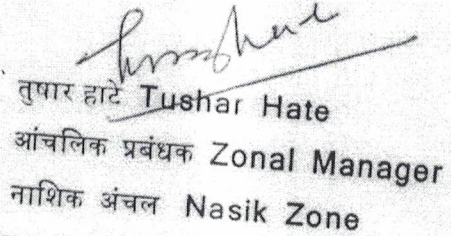 तुषार हाटे Tushar Hate
आंचलिक प्रबंधक Zonal Manager
नाशिक अंचल Nasik Zone